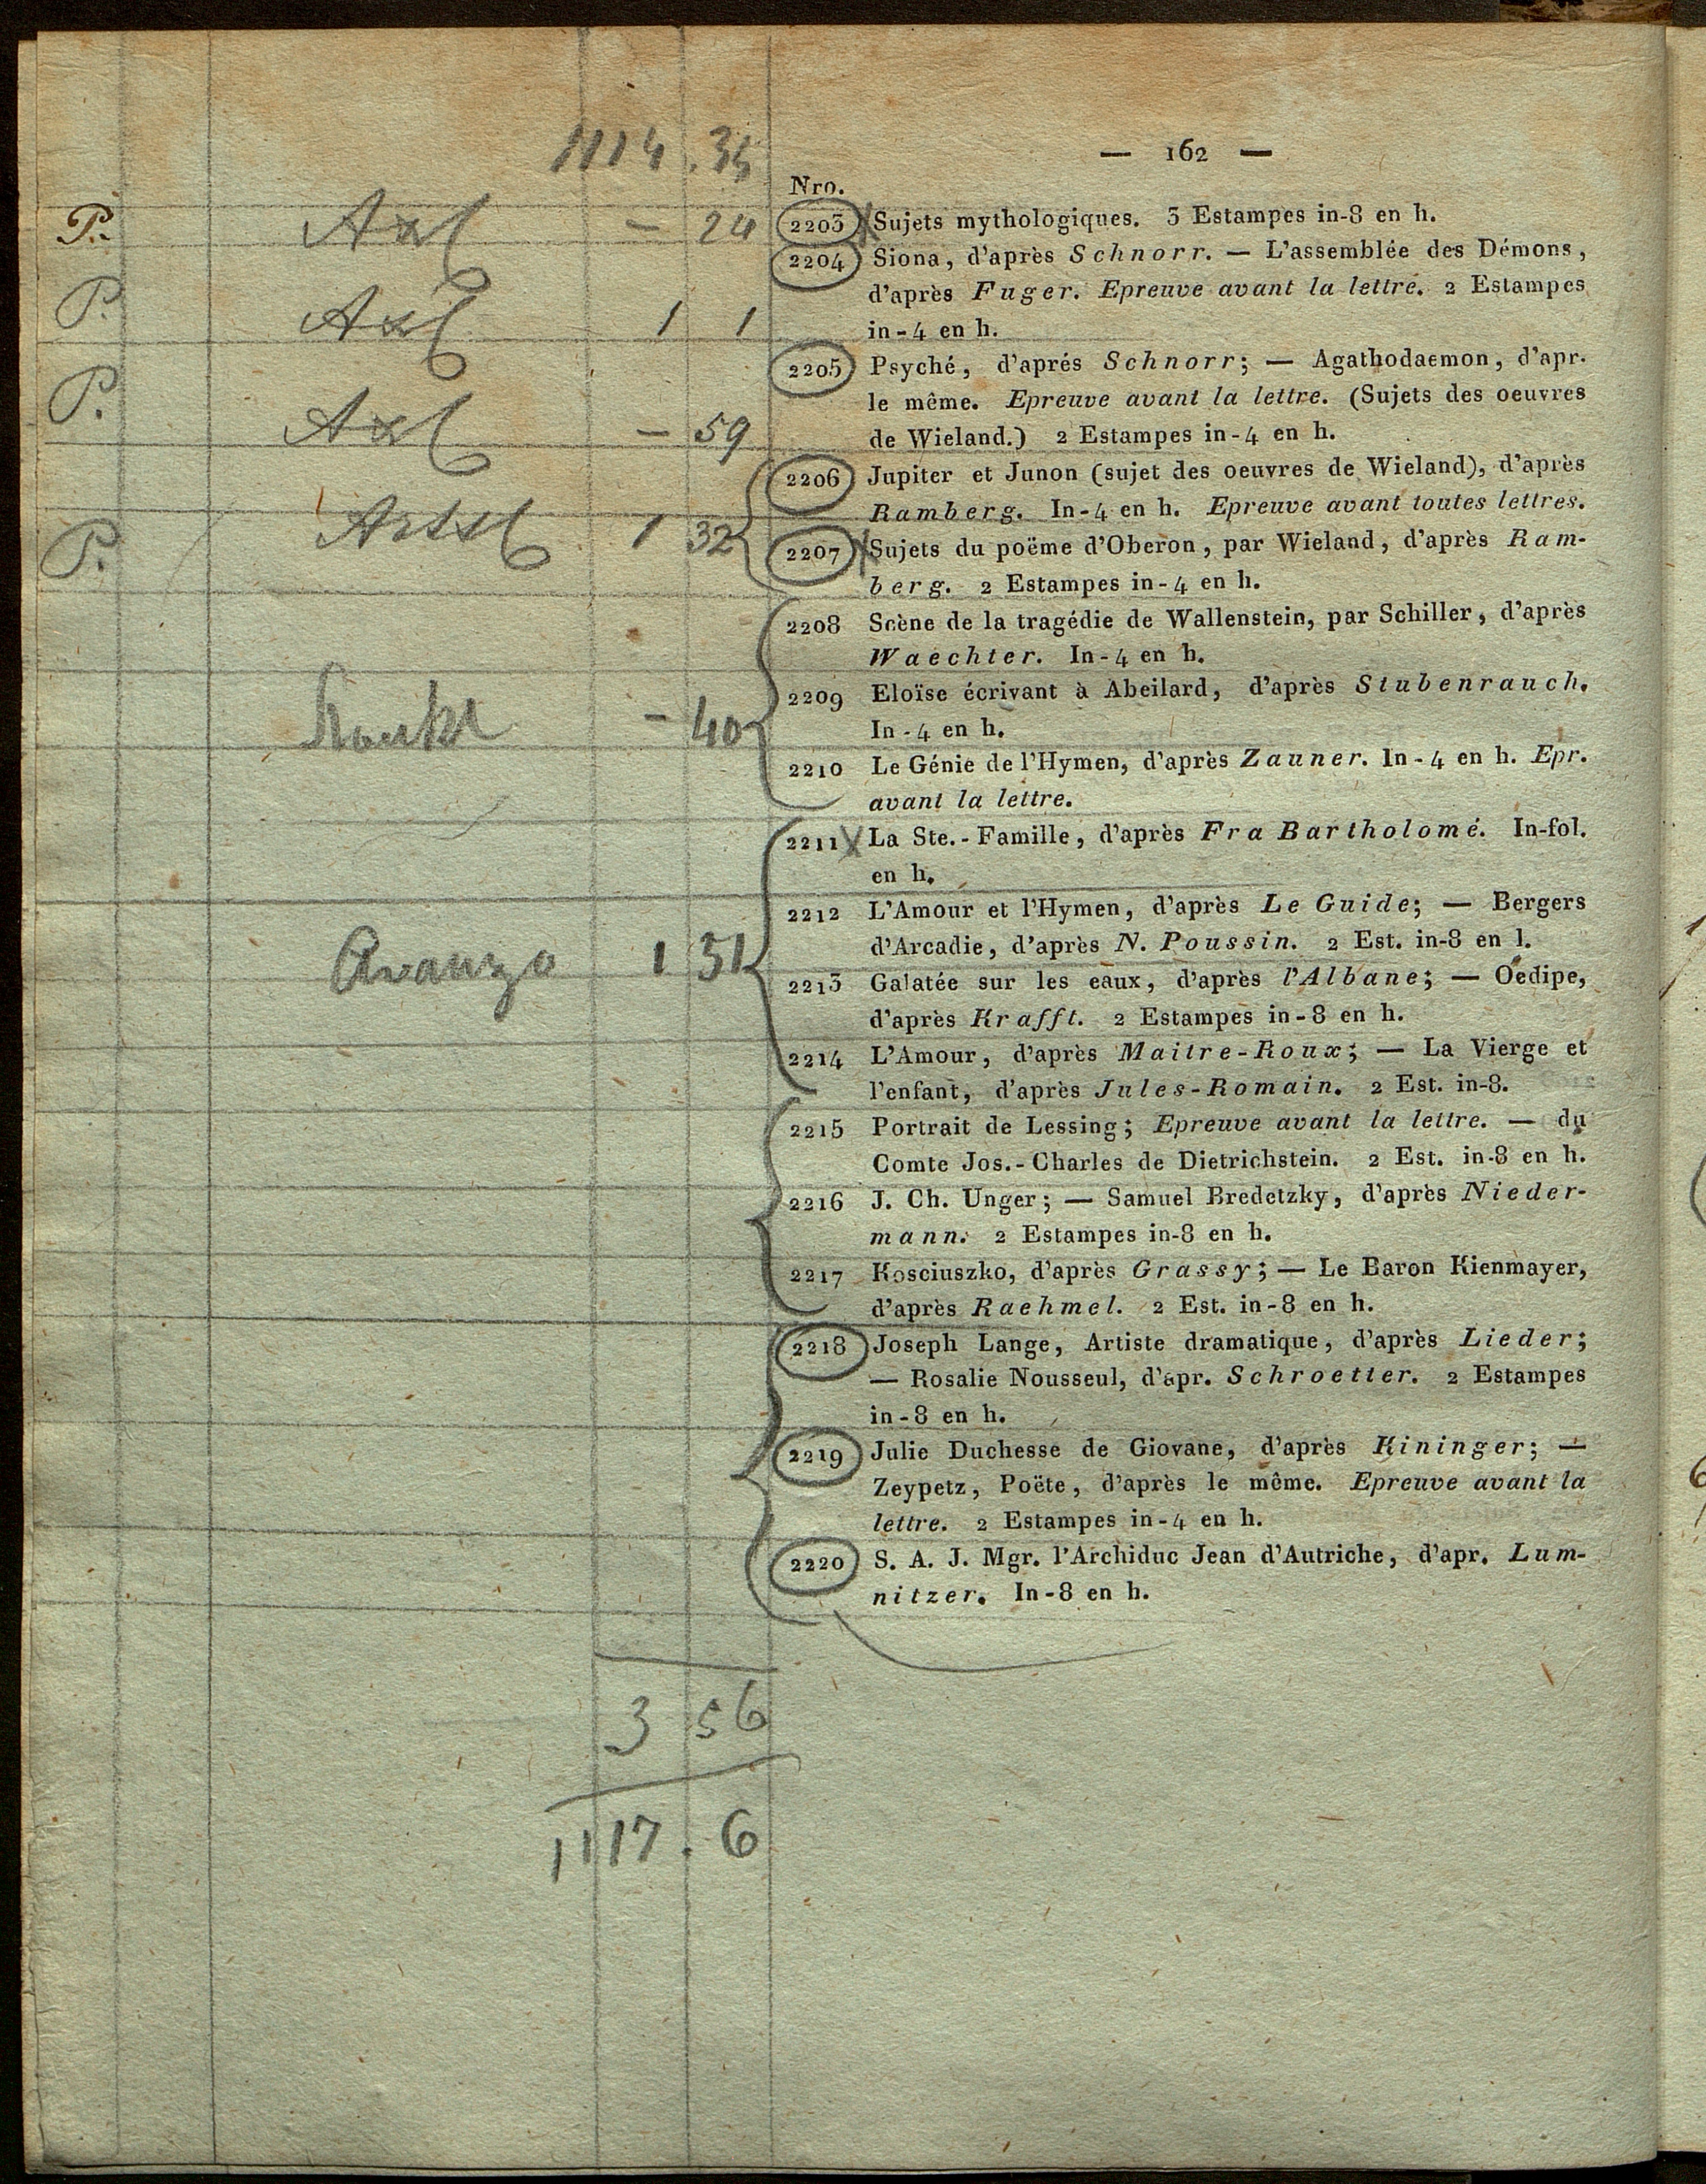 1114 . 35
— 162 —
Nro.
P. Axl — 24 2203 Sujets mythologiques. 3 Estampes in-8 en h.
2204 Siona, d'après Schnorr. — L'assemblée des Démons,
d'après Fuger. Epreuve avant la lettre. 2 Estampes
P. Axl 1 1 in-4 en h.
2205 Psyché, d'aprés Schnorr; — Agathodaemon, d'apr.
le même. Epreuve avant la lettre. (Sujets des oeuvres
P. Axl — 59 de Wieland.) 2 Estampes in-4 en h.
2206 Jupiter et Junon (sujet des oeuvres de Wieland), d'après
Ramberg. In-4 en h. Epreuve avant toutes lettres.
P. 1 32 2207 Sujets du poëme d'Oberon, par Wieland, d'après Ram-
berg. 2 Estampes in-4 en h.
2208 Scène de la tragédie de Wallenstein, par Schiller, d'après
Waechter. In-4 en h.
2209 Eloïse écrivant à Abeilard, d'après Stubenrauch.
— 40 In-4 en h.
2210 Le Génie de l'Hymen, d'après Zauner. In-4 en h. Epr.
avant la lettre.
2211 La Ste.-Famille, d'après Fra Bartholomé. In-fol.
en h.
2212 L'Amour et l'Hymen, d'après Le Guide; — Bergers
Avanzo 1 31 d'Arcadie, d'après N. Poussin. 2 Est. in-8 en l.
2213 Galatée sur les eaux, d'après l'Albane; — Oedipe,
d'après Krafft. 2 Estampes in-8 en h.
2214 L'Amour, d'après Maitre-Roux; — La Vierge et
l'enfant, d'après Jules-Romain. 2 Est. in-8.
2215 Portrait de Lessing; Epreuve avant la lettre. — du
Comte Jos.-Charles de Dietrichstein. 2 Est. in-8 en h.
2216 J. Ch. Unger; — Samuel Bredetzky, d'après Nieder-
mann. 2 Estampes in-8 en h.
2217 Kosciuszko, d'après Grassy; — Le Baron Kienmayer,
d'après Raehmel. 2 Est. in-8 en h.
2218 Joseph Lange, Artiste dramatique, d'après Lieder;
— Rosalie Nousseul, d'apr. Schroetter. 2 Estampes
in-8 en h.
2219 Julie Duchesse de Giovane, d'après Kininger; —
Zeypetz, Poëte, d'après le même. Epreuve avant la
lettre. 2 Estampes in-4 en h.
2220 S. A. J. Mgr. l'Archiduc Jean d'Autriche, d'apr. Lum-
nitzer. In-8 en h.
3 56
1117 . 6